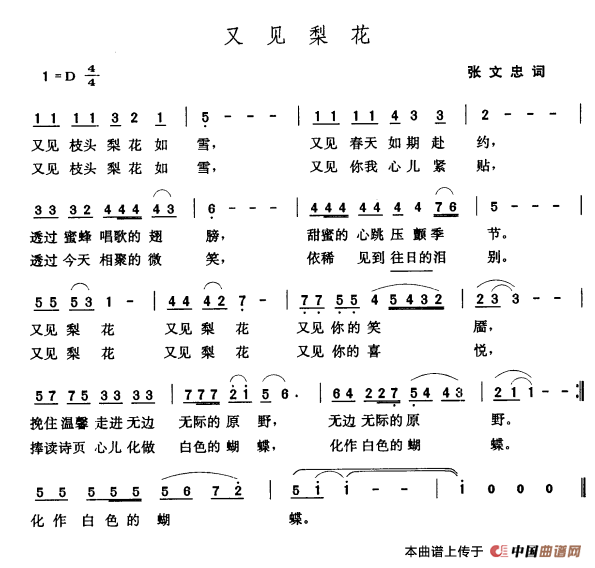 又见梨花
1=D 4/4
张文忠词
1 1 1 1 3 2 1 | 5 - - - | 1 1 1 1 4 3 3 | 2 - - - |
又见枝头梨花如雪， 又见春天如期赴约，
又见枝头梨花如雪， 又见你我心儿紧贴，
3 3 3 2 4 4 4 4 3 | 6 - - - | 4 4 4 4 4 4 7 6 | 5 - - - |
透过蜜蜂唱歌的翅膀， 甜蜜的心跳压颤季节。
透过今天相聚的微笑， 依稀见到往日的泪别。
5 5 5 3 1 - | 4 4 4 2 7 - | 7 7 5 5 4 5 4 3 2 | 2 3 3 - - |
又见梨花 又见梨花 又见你的笑靥，
又见梨花 又见梨花 又见你的喜悦，
5 7 7 5 3 3 3 3 | 7 7 7 7 2 1 5 6 · | 6 4 2 2 7 5 4 4 3 | 2 1 1 - - :‖
挽住温馨走进无边 无际的原野， 无边无际的原野。
捧读诗页心儿化做 白色的蝴蝶， 化作白色的蝴蝶。
5 5 5 5 5 5 6 7 2 | 5 1 1 - - | 1 0 0 0 ‖
化作白色的蝴蝶。
本曲谱上传于 中国曲谱网